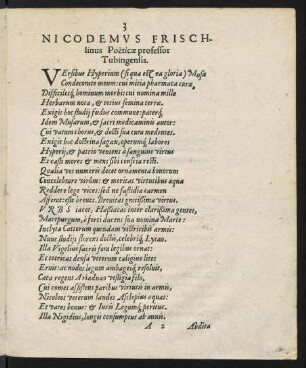 3
NICODEMVS FRISCH-
linus Poëticæ professor
Tubingensis.
VErsibus Hyperium (si qua est ea gloria) Musæ
Condecorate meum: cui mitia pharmaca cura,
Difficileſq́; hominum morbi: cui nomina mille
Herbarum nota, & totius semina terræ.
Exigit hoc studij fœdus commune: paterq́;
Idem Musarum, & sacri medicaminis autor:
Cui vatum chorus, & docti sua cura medentes.
Exigit hoc doctrina sagax, operumq́; labores
Hyperij, & patrio veniens à sanguine virtus
Et casti mores & mens sibi conscia recti.
Qualia vos numeris decet ornamenta bonorum
Concelebrare virûm: & meritas virtutibus æqua
Reddere lege vices: sed ne fastidia carmen
Afferat: esto breuis. Breuitas gratissima virtus.
VRBS iacet, Hassiacas inter clarissima gentes,
Martpurgum, à prisci ducens sua nomina Marte:
Inclyta Cattorum quondam victricibus armis:
Nunc studijs florens doctis, celebriq́; Lyceo.
Illa Vigelius sacri fora legibus ornat:
Et tetricas densa veterum caligine lites
Eruit: ac nodos legum ambageśq́; resoluit,
Cæca regens Ariadnæo vestigia filo,
Cui comes assistens paribus virtutis in armis,
Nicolois veterum laudes Asclepius æquat:
Et vates bonus: & Iuris Legumq́; peritus.
Illa Nigidius, longis consumptus ab annis.
A 2
Abdita